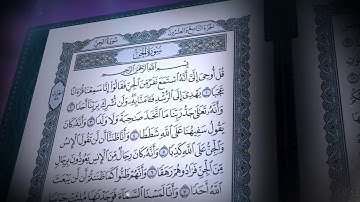 سُورَةُ الجِنّ
الجُزْءُ التَّاسِعُ وَالعِشْرُونَ
سُورَةُ الجِنّ
بِسْمِ اللَّهِ الرَّحْمَٰنِ الرَّحِيمِ
قُلْ أُوحِيَ إِلَيَّ أَنَّهُ اسْتَمَعَ نَفَرٌ مِّنَ الْجِنِّ فَقَالُوا إِنَّا سَمِعْنَا قُرْءَانًا
عَجَبًا ١ يَهْدِي إِلَى الرُّشْدِ فَـَٔامَنَّا بِهِ وَلَن نُّشْرِكَ بِرَبِّنَا أَحَدًا
٢ وَأَنَّهُ تَعَالَىٰ جَدُّ رَبِّنَا مَا اتَّخَذَ صَاحِبَةً وَلَا وَلَدًا ٣ وَأَنَّهُ كَانَ
يَقُولُ سَفِيهُنَا عَلَى اللَّهِ شَطَطًا ٤ وَأَنَّا ظَنَنَّا أَن لَّن تَقُولَ الْإِنسُ
وَالْجِنُّ عَلَى اللَّهِ كَذِبًا ٥ وَأَنَّهُ كَانَ رِجَالٌ مِّنَ الْإِنسِ يَعُوذُونَ بِرِجَالٍ
مِّنَ الْجِنِّ فَزَادُوهُمْ رَهَقًا ٦ وَأَنَّهُمْ ظَنُّوا كَمَا ظَنَنتُمْ أَن لَّن يَبْعَثَ
اللَّهُ أَحَدًا ٧ وَأَنَّا لَمَسْنَا السَّمَاءَ فَوَجَدْنَاهَا مُلِئَتْ حَرَسًا